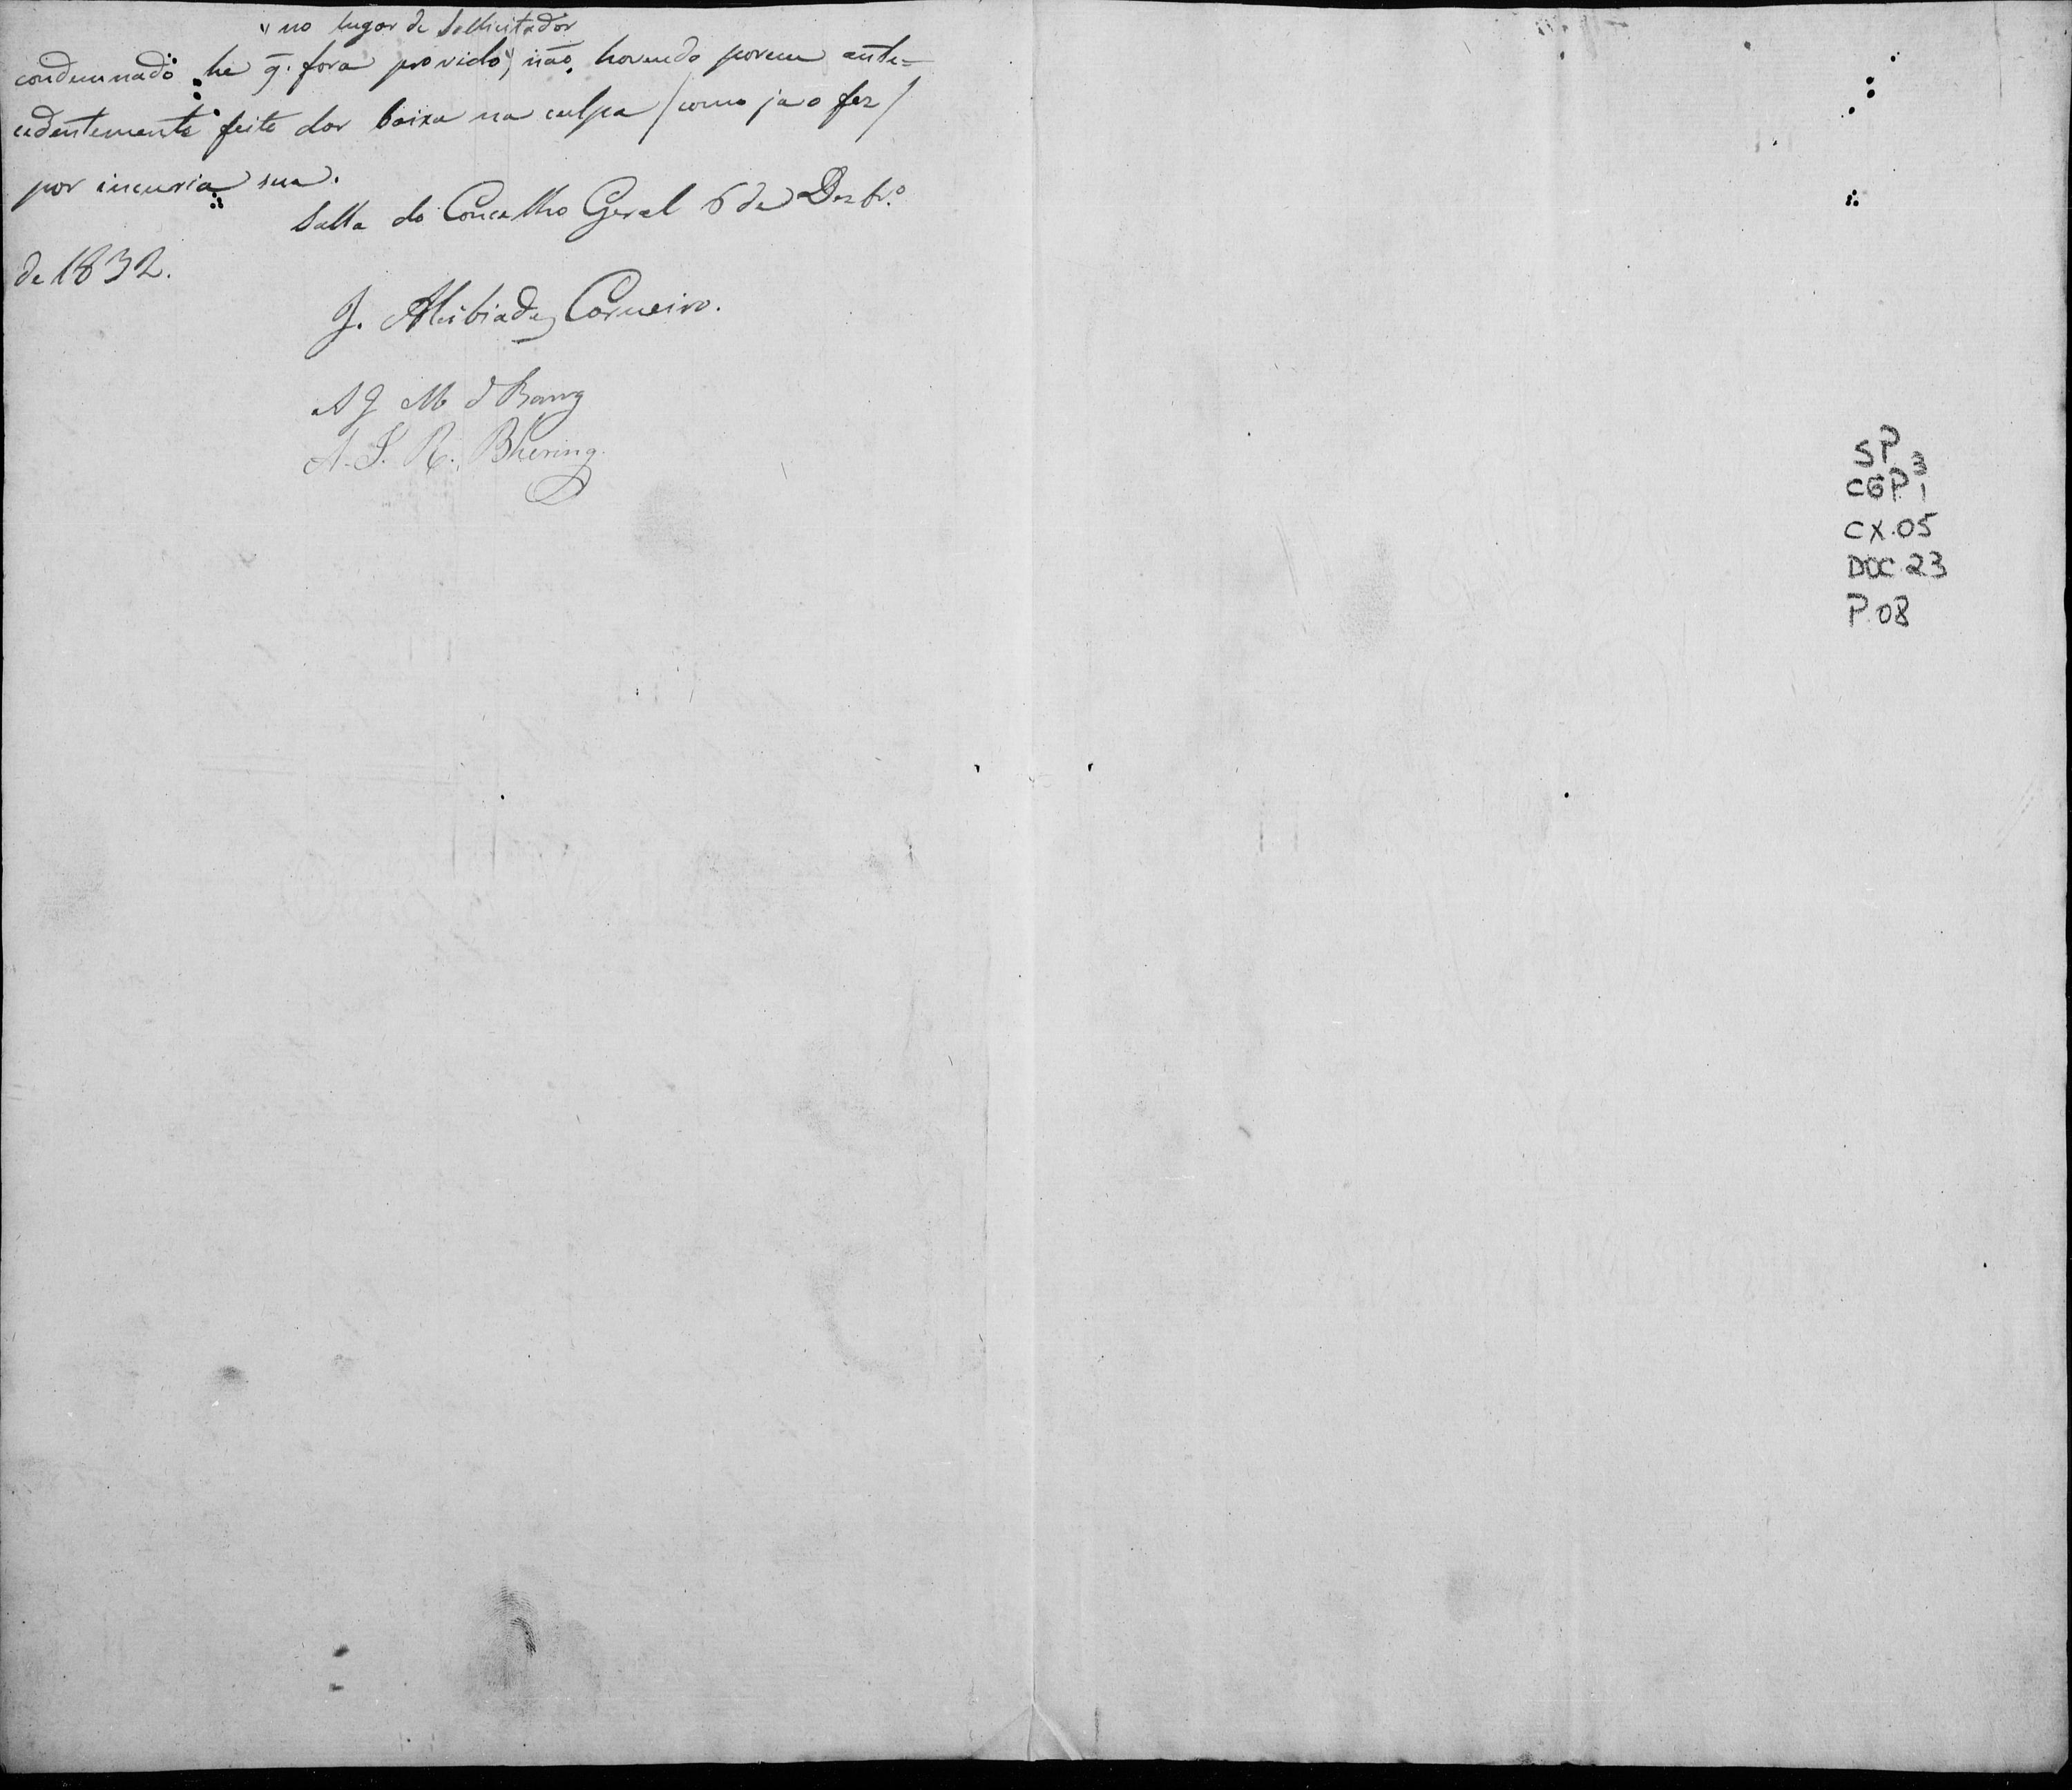 " no lugar de Sollicitador
condemnado he q. fora provido", não havendo porem ante=
cedentemente feito dar baixa na culpa / como ja o fez /
por incuria sua.
Salla do Concelho Geral 6 de Dezbr.o
de 1832.
J. Alcibiades Carneiro.
A J M d
A. J. R. Bhering.
SP
CGP 1 3
CX.05
DOC.23
P.08